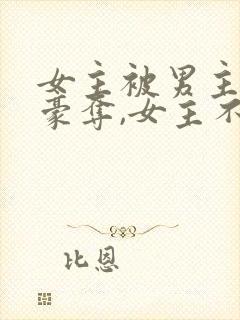 女主被男主
豪夺,女主不
比恩